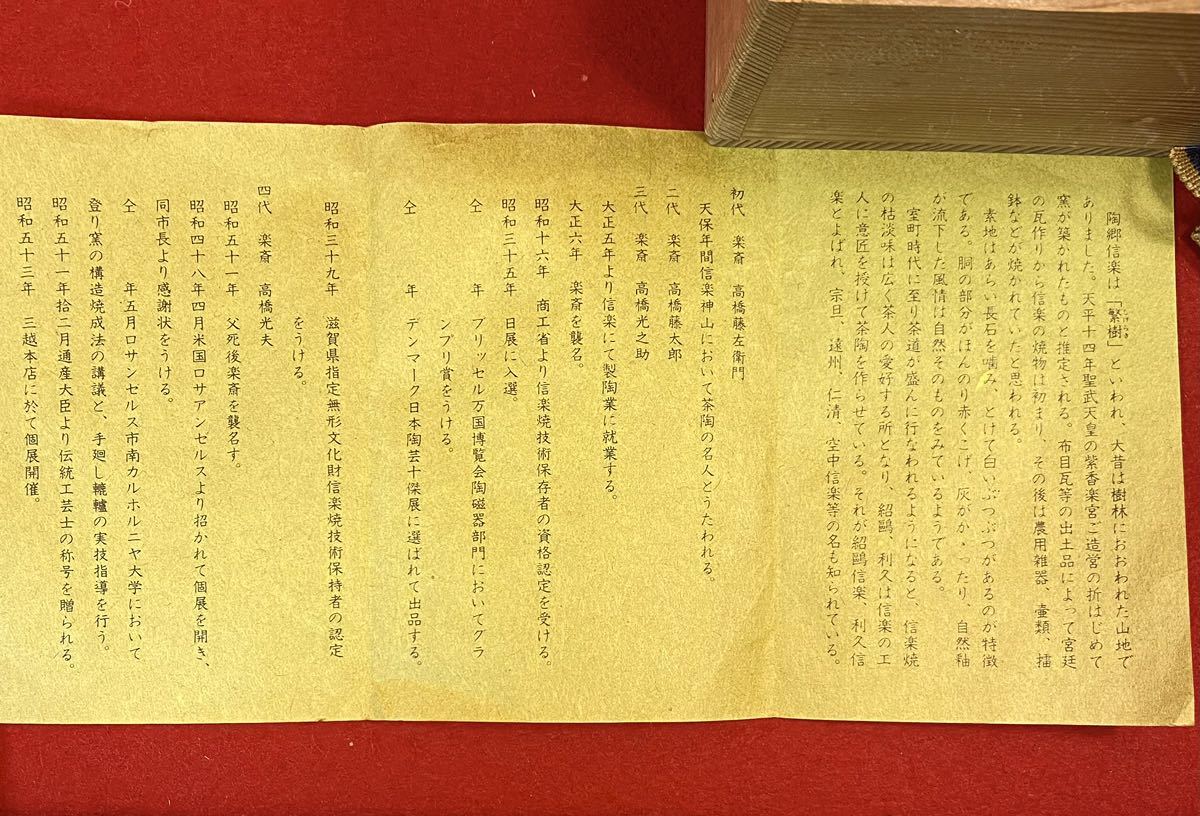 陶郷信楽は「繁樹」といわれ、大昔は樹林におおわれた山地で
ありました。天平十四年聖武天皇の紫香楽宮ご造営の折はじめて
窯が築かれたものと推定される。布目瓦等の出土品によって宮廷
の瓦作りから信楽の焼物は初まり、その後は農用雑器、壷類、擂
鉢などが焼かれていたと思われる。
素地はあらい長石を噛み、とけて白いぶつぶつがあるのが特徴
である。胴の部分がほんのり赤くこげ、灰がかゝったり、自然釉
が流下した風情は自然そのものをみているようである。
室町時代に至り茶道が盛んに行なわれるようになると、信楽焼
の枯淡味は広く茶人の愛好する所となり、紹鷗、利久は信楽の工
人に意匠を授けて茶陶を作らせている。それが紹鷗信楽、利久信
楽とよばれ、宗旦、遠州、仁清、空中信楽等の名も知られている。
初代 楽斎 高橋藤左衛門
天保年間信楽神山において茶陶の名人とうたわれる。
二代 楽斎 高橋藤太郎
三代 楽斎 高橋光之助
大正五年より信楽にて製陶業に就業する。
大正六年 楽斎を襲名。
昭和十六年 商工省より信楽焼技術保存者の資格認定を受ける。
昭和三十五年 日展に入選。
仝 年 ブリッセル万国博覧会陶磁器部門においてグラ
ンプリ賞をうける。
仝 年 デンマーク日本陶芸十傑展に選ばれて出品する。
昭和三十九年 滋賀県指定無形文化財信楽焼技術保持者の認定
をうける。
四代 楽斎 高橋光夫
昭和五十一年 父死後楽斎を襲名す。
昭和四十八年四月米国ロサアンゼルスより招かれて個展を開き、
同市長より感謝状をうける。
仝 年五月ロサンセルス市南カルホルニヤ大学において
登り窯の構造焼成法の講議と、手廻し轆轤の実技指導を行う。
昭和五十一年拾二月通産大臣より伝統工芸士の称号を贈られる。
昭和五十三年 三越本店に於て個展開催。